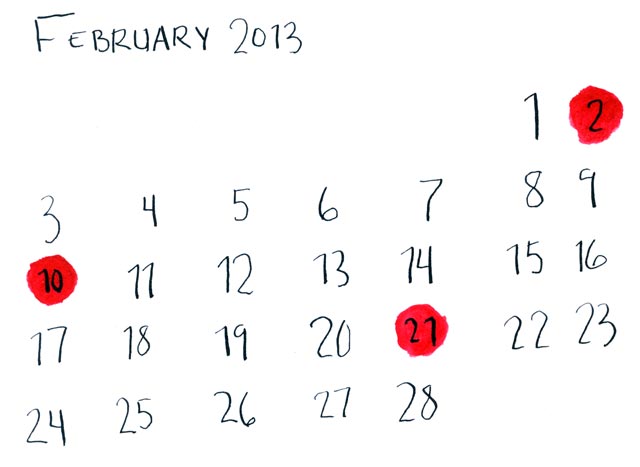 FEBRUARY 2013
1 2
3 4 5 6 7 8 9
10 11 12 13 14 15 16
17 18 19 20 21 22 23
24 25 26 27 28